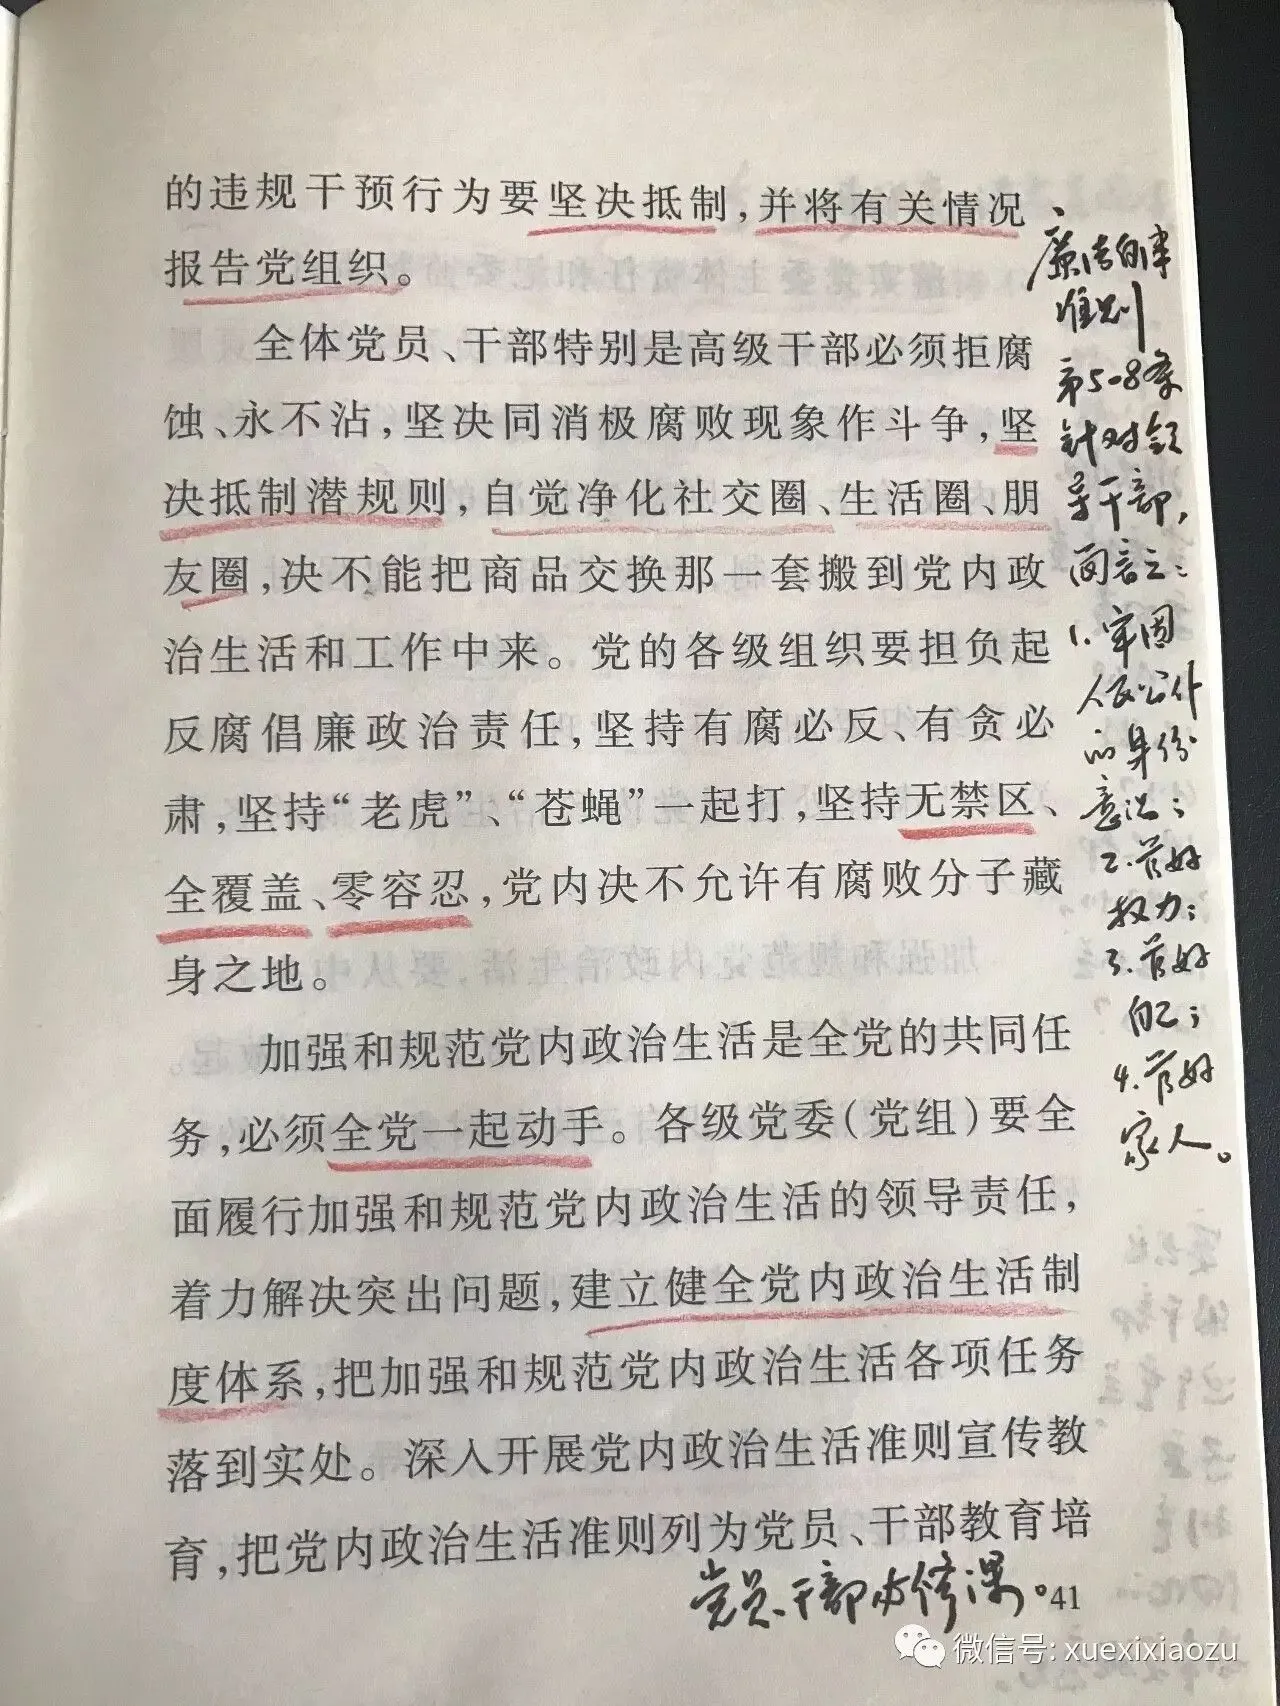 的违规干预行为要坚决抵制，并将有关情况
报告党组织。
全体党员、干部特别是高级干部必须拒腐
蚀、永不沾，坚决同消极腐败现象作斗争，坚
决抵制潜规则，自觉净化社交圈、生活圈、朋
友圈，决不能把商品交换那一套搬到党内政
治生活和工作中来。党的各级组织要担负起
反腐倡廉政治责任，坚持有腐必反、有贪必
肃，坚持“老虎”、“苍蝇”一起打，坚持无禁区、
全覆盖、零容忍，党内决不允许有腐败分子藏
身之地。
加强和规范党内政治生活是全党的共同任
务，必须全党一起动手。各级党委（党组）要全
面履行加强和规范党内政治生活的领导责任，
着力解决突出问题，建立健全党内政治生活制
度体系，把加强和规范党内政治生活各项任务
落到实处。深入开展党内政治生活准则宣传教
育，把党内政治生活准则列为党员、干部教育培
廉洁自律
准则
第5-8条
针对领
导干部，
简言之：
1.牢固
人民公仆
的身份
意识；
2.管好
权力；
3.管好
自己；
4.管好
家人。
党员、干部必修课。
41
微信号: xuexixiaozu